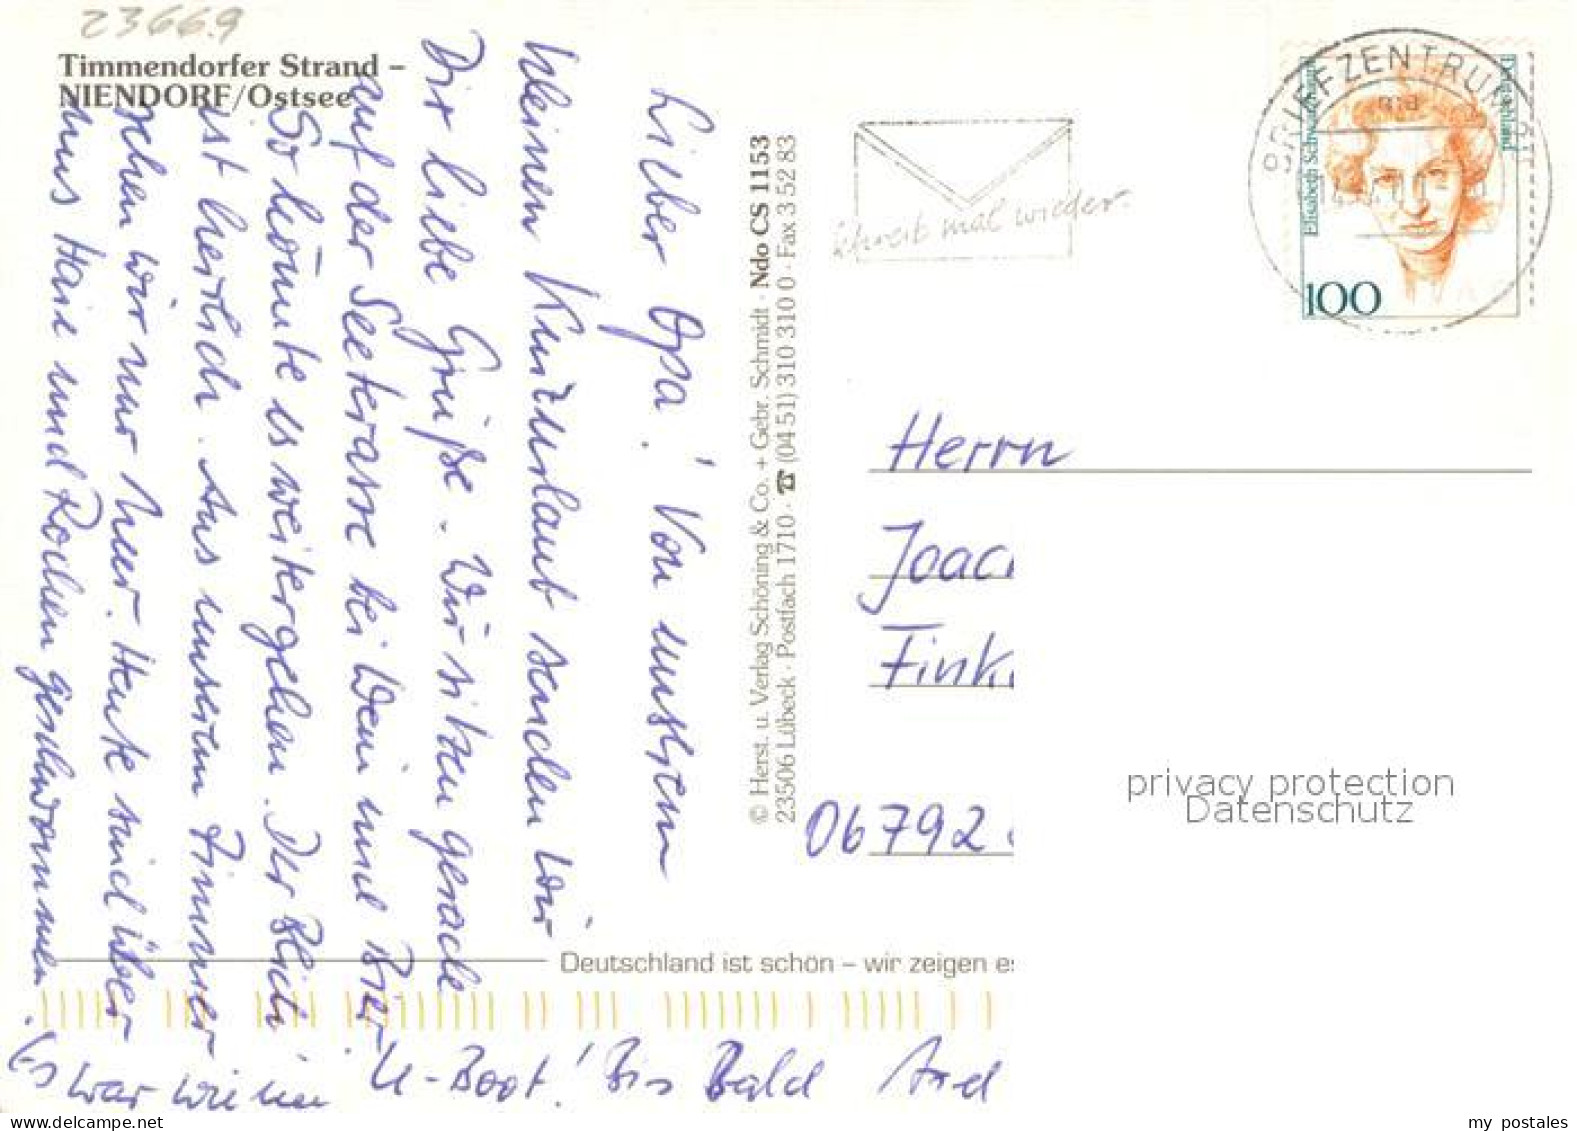 23669
Timmendorfer Strand –
NIENDORF/Ostsee
Lieber Opa! Von unserem
kleinen Kurzurlaub senden wir
Dir liebe Grüße. Wir sitzen gerade
auf der Seeterasse bei Wein und Bier.
So könnte es weitergehen. Der Blick
ist herlich. Aus unserem Zimmer
sehen wir nur Meer. Heute sind über
uns Haie und Rochen geschwommen.
Es war wie im U-Boot! Bis Bald
© Herst. u. Verlag Schöning & Co. + Gebr. Schmidt · Ndo CS 1153
23506 Lübeck · Postfach 1710 · ☎ (04 51) 310 310 0 · Fax 3 52 83
Schreib mal wieder.
BRIEFZENTRUM
Elisabeth Schwarzhaupt
Deutschland
100
Herrn
Joac
Fink
06792
privacy protection
Datenschutz
Deutschland ist schön – wir zeigen es
my postales